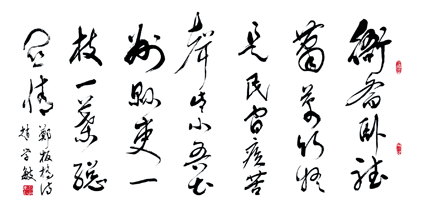 衙斋卧听
萧萧竹疑
是民间疾苦
声些小吾曹
州县吏一
枝一叶总
关情
郑板桥诗
学敏